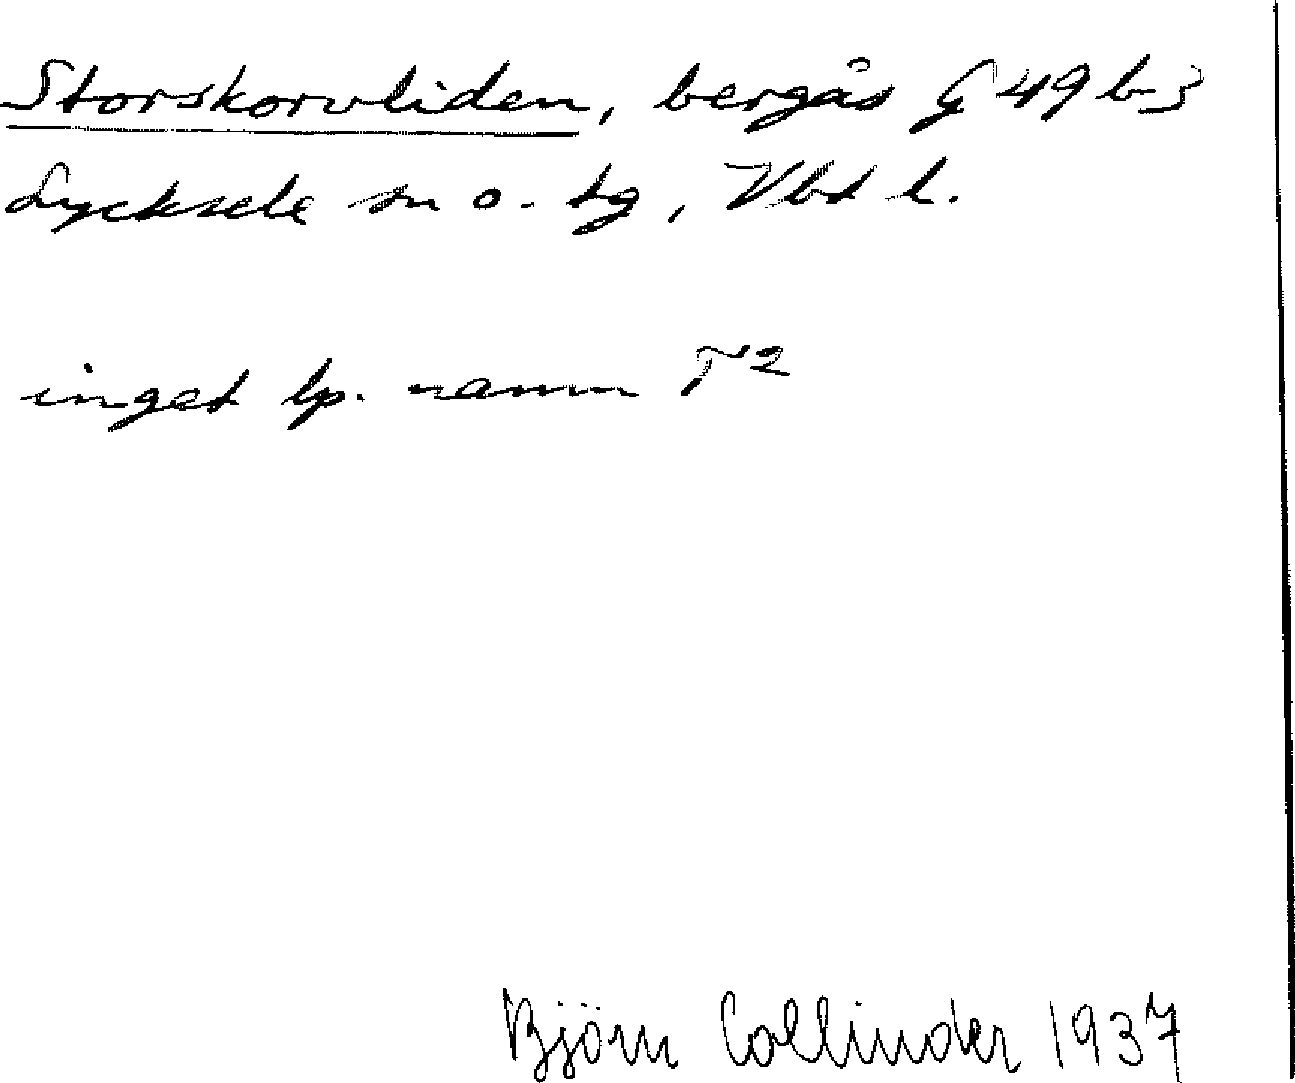 Storskorvliden, bergås G 49 b 3
Lycksele sn o. tg, Vbt l.
inget lp. namn T2
Björn Collinder 1937